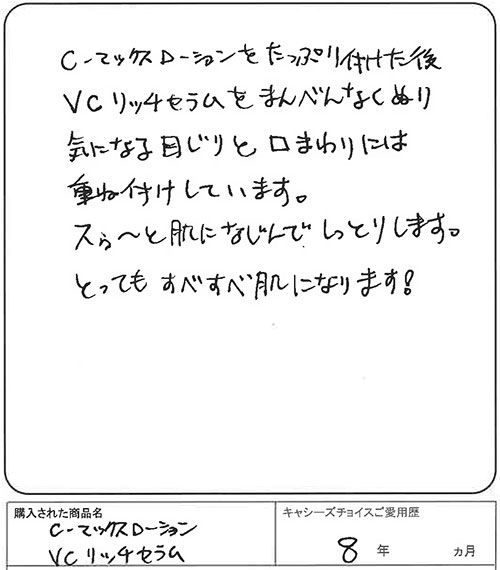 C-マックスローションをたっぷり付けた後
VCリッチセラムをまんべんなくぬり
気になる目じりと口まわりには
重ね付けしています。
スぅ～と肌になじんでしっとりします。
とってもすべすべ肌になります!
購入された商品名
C-マックスローション
VCリッチセラム
キャシーズチョイスご愛用歴
8年 ヵ月